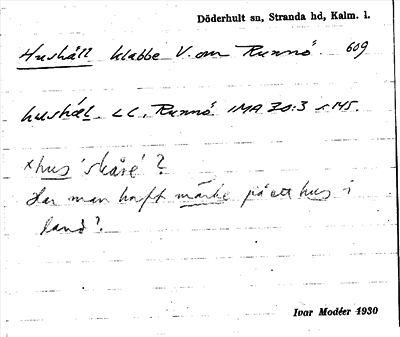 Döderhult sn, Stranda hd, Kalm. l.
Hushäll klabbe V. om Runnö 609
hushäl. LL, Runnö. IMA 20:3 s. 145.
*hus 'skåre' ?
Har man haft märke på ett hus i
land?
Ivar Modéer 1930